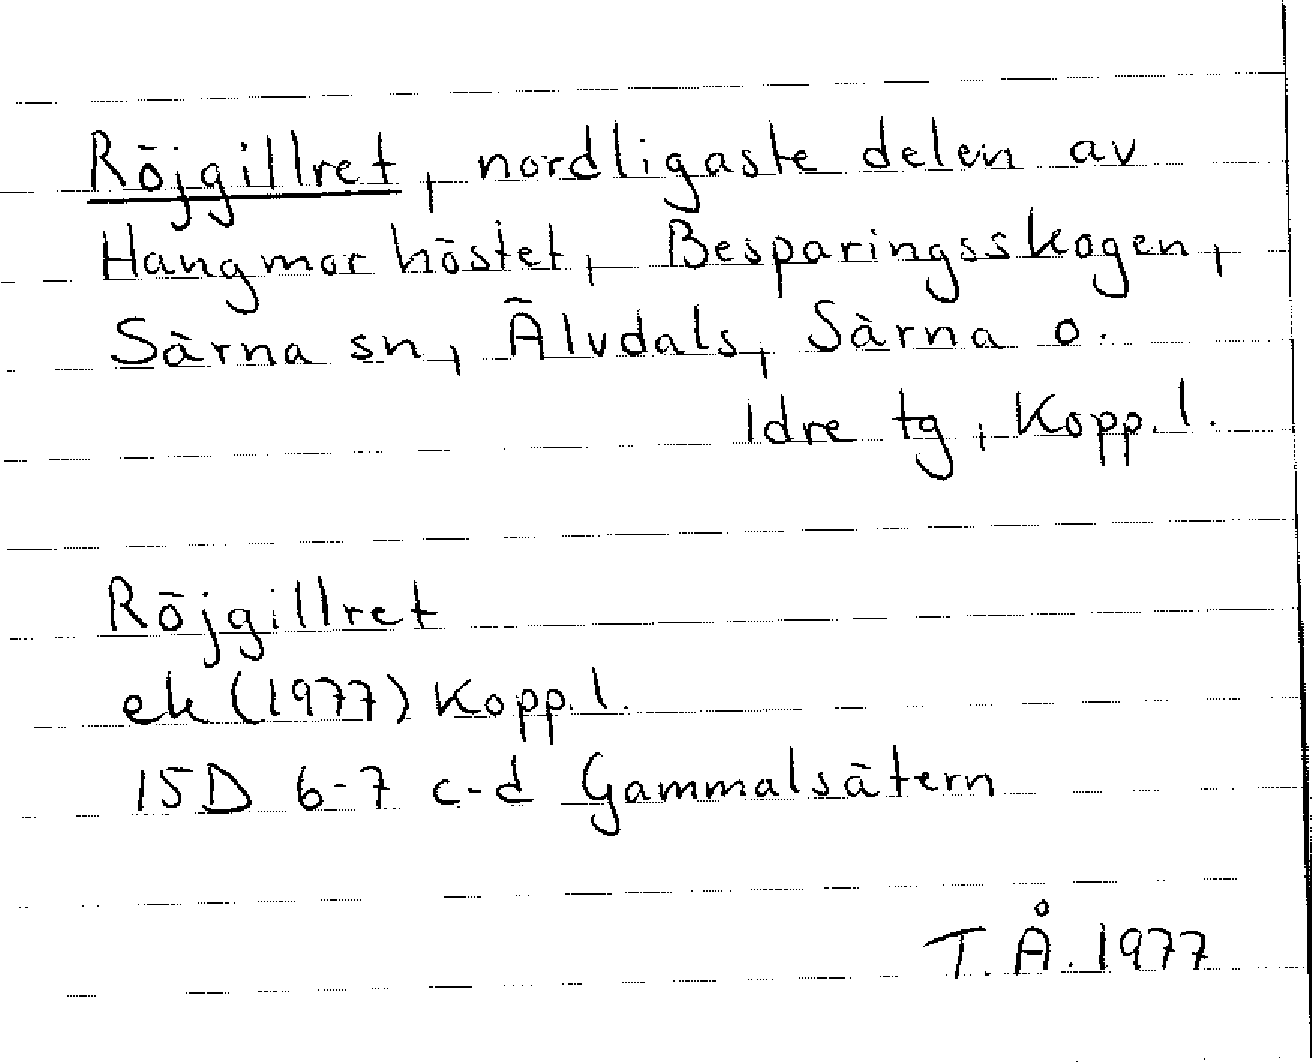 Röjgillret, nordligaste delen av
Hangmorhöstet, Besparingsskogen,
Särna sn, Älvdals, Särna o.
Idre tg, Kopp.l.
Röjgillret
ek (1977) Kopp.l.
15D 6-7 c-d Gammalsätern
T.Å. 1977